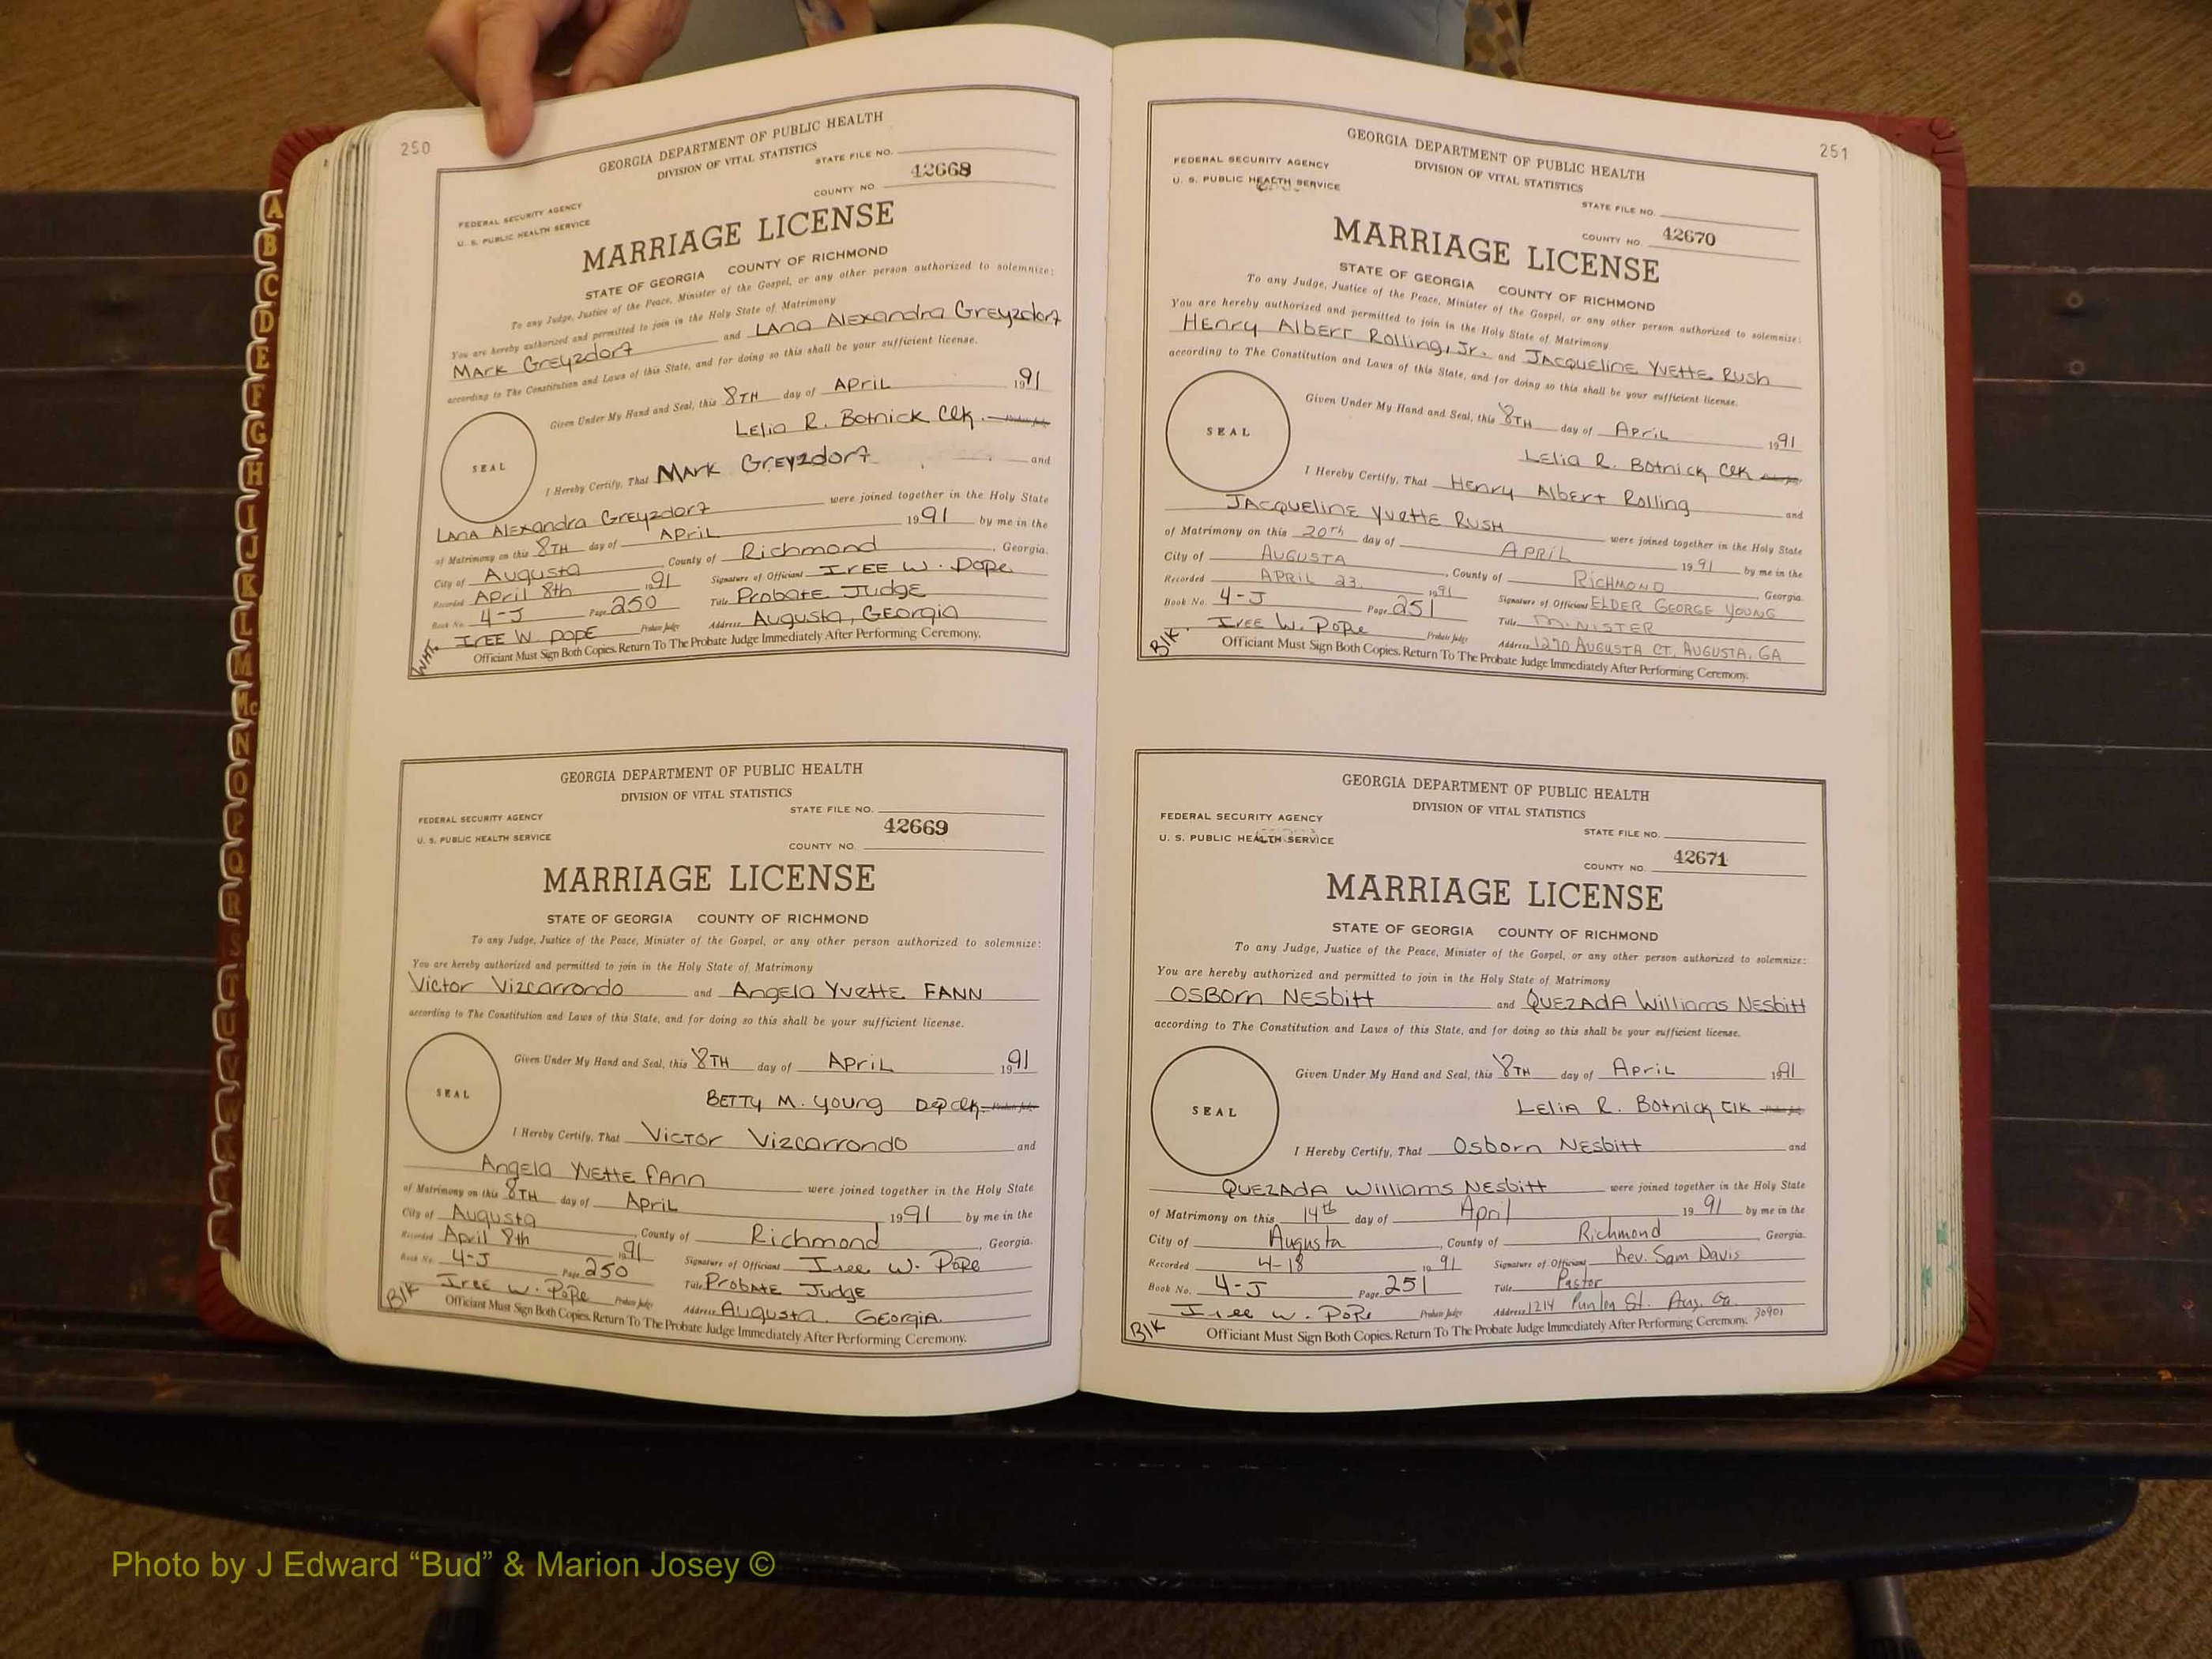 250
GEORGIA DEPARTMENT OF PUBLIC HEALTH
DIVISION OF VITAL STATISTICS
STATE FILE NO.
42668
COUNTY NO.
FEDERAL SECURITY AGENCY
U. S. PUBLIC HEALTH SERVICE
MARRIAGE LICENSE
STATE OF GEORGIA COUNTY OF RICHMOND
To any Judge, Justice of the Peace, Minister of the Gospel, or any other person authorized to solemnize:
You are hereby authorized and permitted to join in the Holy State of Matrimony
Mark Greyzdorf and LANA AlExandra Greyzdorf
according to The Constitution and Laws of this State, and for doing so this shall be your sufficient license.
Given Under My Hand and Seal, this 8TH day of April 1991
Lelia R. Botnick Clk. Probate Judge
SEAL
I Hereby Certify, That MArk Greyzdorf and
LANA AlExandra Greyzdorf were joined together in the Holy State
of Matrimony on this 8TH day of April 1991 by me in the
City of Augusta, County of Richmond, Georgia.
Recorded April 8th 1991 Signature of Officiant IrEE W. Pope
Book No. 4-J Page 250 Title ProbatE JudgE
IrEE W. POPE Probate Judge Address Augusta, GEOrgia
WHt. Officiant Must Sign Both Copies. Return To The Probate Judge Immediately After Performing Ceremony.
GEORGIA DEPARTMENT OF PUBLIC HEALTH
DIVISION OF VITAL STATISTICS
STATE FILE NO.
FEDERAL SECURITY AGENCY
42669
U. S. PUBLIC HEALTH SERVICE
COUNTY NO.
MARRIAGE LICENSE
STATE OF GEORGIA COUNTY OF RICHMOND
To any Judge, Justice of the Peace, Minister of the Gospel, or any other person authorized to solemnize:
You are hereby authorized and permitted to join in the Holy State of Matrimony
Victor Vizcarrondo and Angela YvettE FANN
according to The Constitution and Laws of this State, and for doing so this shall be your sufficient license.
Given Under My Hand and Seal, this 8TH day of April 1991
BETTy M. Young Dep Clk. Probate Judge
SEAL
I Hereby Certify, That Victor Vizcarrondo and
Angela YvettE FANN were joined together in the Holy State
of Matrimony on this 8TH day of April 1991 by me in the
City of Augusta, County of Richmond, Georgia.
Recorded April 8th 1991 Signature of Officiant Iree W. Pope
Book No. 4-J Page 250 Title ProbatE Judge
IrEE W. Pope Probate Judge Address Augusta, GEOrgiA.
Blk Officiant Must Sign Both Copies. Return To The Probate Judge Immediately After Performing Ceremony.
251
GEORGIA DEPARTMENT OF PUBLIC HEALTH
DIVISION OF VITAL STATISTICS
FEDERAL SECURITY AGENCY
U. S. PUBLIC HEALTH SERVICE
STATE FILE NO.
COUNTY NO. 42670
MARRIAGE LICENSE
STATE OF GEORGIA COUNTY OF RICHMOND
To any Judge, Justice of the Peace, Minister of the Gospel, or any other person authorized to solemnize:
You are hereby authorized and permitted to join in the Holy State of Matrimony
HEnry AlbErt Rolling, Jr. and JAcquelinE YvettE Rush
according to The Constitution and Laws of this State, and for doing so this shall be your sufficient license.
Given Under My Hand and Seal, this 8TH day of April 1991
Lelia R. Botnick Clk Probate Judge
SEAL
I Hereby Certify, That HEnry Albert Rolling and
JAcquelinE YvettE RUSH were joined together in the Holy State
of Matrimony on this 20th day of APRIL 1991 by me in the
City of AUGUSTA, County of RICHMOND, Georgia.
Recorded APRIL 23, 1991 Signature of Officiant ELDER GEORGE YOUNG
Book No. 4-J Page 251 Title MINISTER
IrEE W. Pope Probate Judge Address 1270 AUGUSTA CT, AUGUSTA, GA
Blk. Officiant Must Sign Both Copies. Return To The Probate Judge Immediately After Performing Ceremony.
GEORGIA DEPARTMENT OF PUBLIC HEALTH
DIVISION OF VITAL STATISTICS
FEDERAL SECURITY AGENCY
STATE FILE NO.
U. S. PUBLIC HEALTH SERVICE
COUNTY NO. 42671
MARRIAGE LICENSE
STATE OF GEORGIA COUNTY OF RICHMOND
To any Judge, Justice of the Peace, Minister of the Gospel, or any other person authorized to solemnize:
You are hereby authorized and permitted to join in the Holy State of Matrimony
OSBOrn NEsbitt and QUEZADA Williams NEsbitt
according to The Constitution and Laws of this State, and for doing so this shall be your sufficient license.
Given Under My Hand and Seal, this 8TH day of April 1991
LEliA R. Botnick Clk Probate Judge
SEAL
I Hereby Certify, That Osborn NEsbitt and
QUEZADA Williams NEsbitt were joined together in the Holy State
of Matrimony on this 14th day of April 1991 by me in the
City of Augusta, County of Richmond, Georgia.
Recorded 4-18 1991 Signature of Officiant Rev. Sam Davis
Book No. 4-J Page 251 Title Pastor
Iree W. Pope Probate Judge Address 1214 St. Aug. Ga. 30901
Blk Officiant Must Sign Both Copies. Return To The Probate Judge Immediately After Performing Ceremony.
A
B
C
D
E
F
G
H
I
J
K
L
M
Mc
N
O
P
Q
R
S
T
U
V
W
Photo by J Edward “Bud” & Marion Josey ©